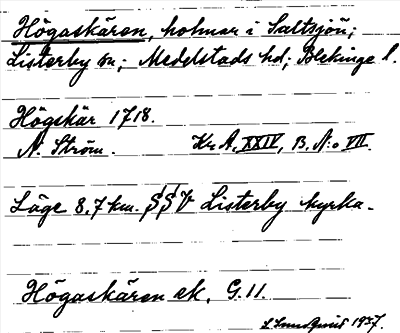 Högaskären, holmar i Saltsjön;
Listerby sn; Medelstads hd; Blekinge l.
Högskär 1718.
N. Ström. Kr. A, XXIV, B, N:o VII.
Läge 8,7 km. SSV Listerby kyrka.
Högaskären ek. G.11.
1937.